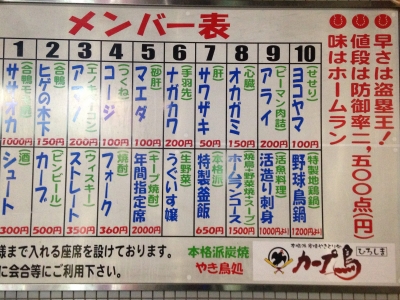 メンバー表
早さは盗塁王!
値段は防御率二,五〇〇点(円)
味はホームラン
1 2 3 4 5 6 7 8 9 10
ササオカ
1000円
(合鴨)
ヒゲの木下
150円
アマノ
200円
(つくね)
コージ
100円
(砂肝)
マエダ
150円
(手羽先)
ナガカワ
200円
(肝)
サワザキ
150円
(心臓)
オカガミ
150円
(ピーマン肉詰)
アライ
200円
(せせり)
ヨコヤマ
100円
(酒)
シュート
300円
(ビンビール)
カーブ
500円
(ウィスキー)
ストレート
350円
(焼酎)
フォーク
360円
(キープ焼酎)
年間指定席
2000円
(生野菜)
うぐいす嬢
200円
(本格派)
特製釜飯
650円
(焼鳥+野菜焼+スープ)
ホームランコース
1500円
(活魚料理)
活造り刺身
1000円より
(特製地鶏鍋)
野球鳥鍋
1200円
様まで入れる座席を設けております。
に会合等にご利用下さい。
本格派炭焼
やき鳥処
カープ鳥
ひろしま